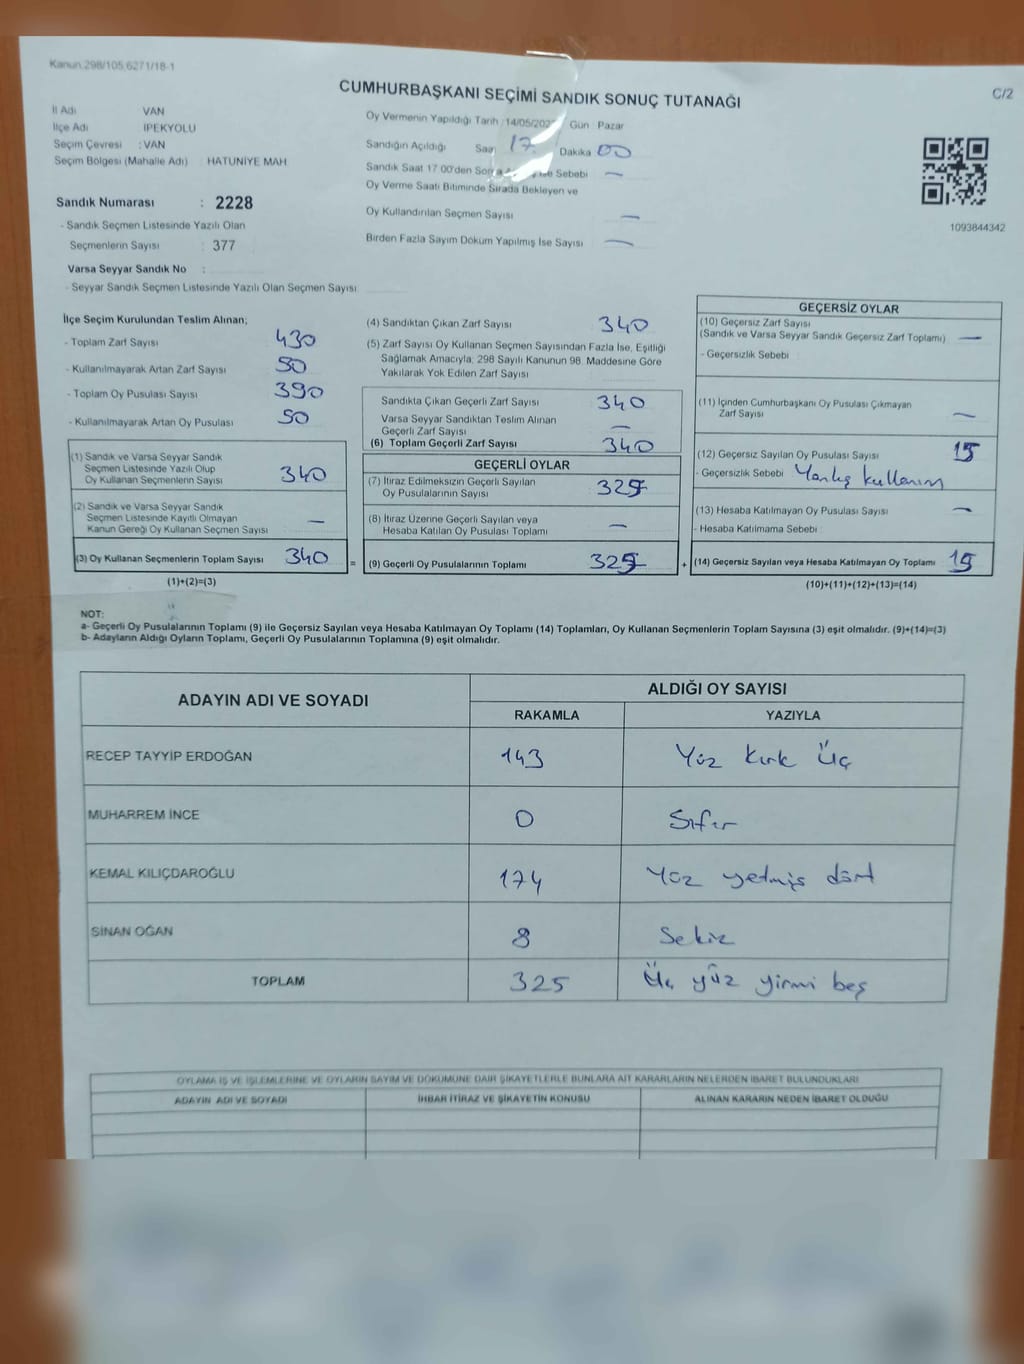 Kanun.298/105,6271/18-1
CUMHURBAŞKANI SEÇİMİ SANDIK SONUÇ TUTANAĞI
C/2
İl Adı VAN
İlçe Adı IPEKYOLU
Seçim Çevresi : VAN
Seçim Bölgesi (Mahalle Adı) : HATUNİYE MAH
Sandık Numarası : 2228
- Sandık Seçmen Listesinde Yazılı Olan
Seçmenlerin Sayısı : 377
Varsa Seyyar Sandık No :
- Seyyar Sandık Seçmen Listesinde Yazılı Olan Seçmen Sayısı
Oy Vermenin Yapıldığı Tarih : 14/05/202 Gün : Pazar
Sandığın Açıldığı Saat 17 Dakika 00
Sandık Saat 17:00'den Sebebi —
Oy Verme Saati Bitiminde Sırada Bekleyen ve
Oy Kullandırılan Seçmen Sayısı —
Birden Fazla Sayım Döküm Yapılmış İse Sayısı —
1093844342
İlçe Seçim Kurulundan Teslim Alınan;
- Toplam Zarf Sayısı 430
- Kullanılmayarak Artan Zarf Sayısı 50
- Toplam Oy Pusulası Sayısı 390
- Kullanılmayarak Artan Oy Pusulası 50
(1) Sandık ve Varsa Seyyar Sandık
Seçmen Listesinde Yazılı Olup
Oy Kullanan Seçmenlerin Sayısı 340
(2) Sandık ve Varsa Seyyar Sandık
Seçmen Listesinde Kayıtlı Olmayan
Kanun Gereği Oy Kullanan Seçmen Sayısı —
(3) Oy Kullanan Seçmenlerin Toplam Sayısı 340
(1)+(2)=(3)
(4) Sandıktan Çıkan Zarf Sayısı 340
(5) Zarf Sayısı Oy Kullanan Seçmen Sayısından Fazla İse, Eşitliği
Sağlamak Amacıyla; 298 Sayılı Kanunun 98. Maddesine Göre
Yakılarak Yok Edilen Zarf Sayısı
Sandıkta Çıkan Geçerli Zarf Sayısı 340
Varsa Seyyar Sandıktan Teslim Alınan
Geçerli Zarf Sayısı —
(6) Toplam Geçerli Zarf Sayısı 340
GEÇERLİ OYLAR
(7) İtiraz Edilmeksizin Geçerli Sayılan
Oy Pusulalarının Sayısı 325
(8) İtiraz Üzerine Geçerli Sayılan veya
Hesaba Katılan Oy Pusulası Toplamı —
= (9) Geçerli Oy Pusulalarının Toplamı 325
GEÇERSİZ OYLAR
(10) Geçersiz Zarf Sayısı
(Sandık ve Varsa Seyyar Sandık Geçersiz Zarf Toplamı) —
- Geçersizlik Sebebi
(11) İçinden Cumhurbaşkanı Oy Pusulası Çıkmayan
Zarf Sayısı —
(12) Geçersiz Sayılan Oy Pusulası Sayısı 15
- Geçersizlik Sebebi Yanlış kullanım
(13) Hesaba Katılmayan Oy Pusulası Sayısı —
- Hesaba Katılmama Sebebi
+ (14) Geçersiz Sayılan veya Hesaba Katılmayan Oy Toplamı 15
(10)+(11)+(12)+(13)=(14)
NOT:
a- Geçerli Oy Pusulalarının Toplamı (9) ile Geçersiz Sayılan veya Hesaba Katılmayan Oy Toplamı (14) Toplamları, Oy Kullanan Seçmenlerin Toplam Sayısına (3) eşit olmalıdır. (9)+(14)=(3)
b- Adayların Aldığı Oyların Toplamı, Geçerli Oy Pusulalarının Toplamına (9) eşit olmalıdır.
ADAYIN ADI VE SOYADI ALDIĞI OY SAYISI
RAKAMLA YAZIYLA
RECEP TAYYİP ERDOĞAN 143 Yüz Kırk Üç
MUHARREM İNCE 0 Sıfır
KEMAL KILIÇDAROĞLU 174 Yüz yetmiş dört
SİNAN OĞAN 8 Sekiz
TOPLAM 325 Üç yüz yirmi beş
OYLAMA İŞ VE İŞLEMLERİNE VE OYLARIN SAYIM VE DÖKÜMÜNE DAİR ŞİKAYETLERLE BUNLARA AİT KARARLARIN NELERDEN İBARET BULUNDUKLARI
ADAYIN ADI VE SOYADI İHBAR İTİRAZ VE ŞİKAYETİN KONUSU ALINAN KARARIN NEDEN İBARET OLDUĞU